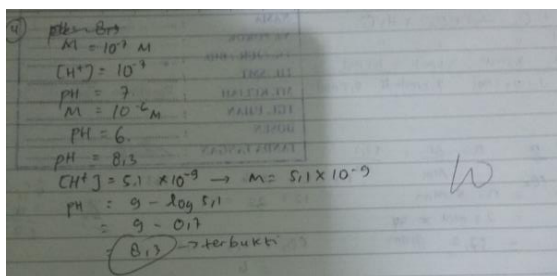 4) pH = 8,3
M = 10⁻⁷ M
[H⁺] = 10⁻⁷
pH = 7
M = 10⁻⁶ M
pH = 6.
pH = 8,3
[H⁺] = 5,1 × 10⁻⁹ → M = 5,1 × 10⁻⁹
pH = 9 - log 5,1
= 9 - 0,7
= 8,3 → terbukti